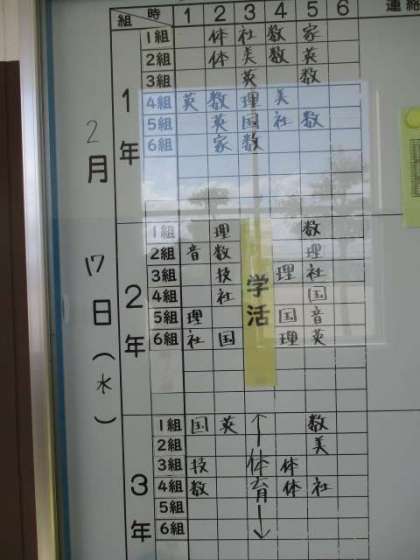 組 時 1 2 3 4 5 6 連絡
2月17日(水)
1年
1組 体 社 数 家
2組 体 美 数 英
3組 英 数
4組 英 数 理 美
5組 英 国 社 数
6組 家 数
2年
学活
1組 理 数
2組 音 数 理
3組 技 理 社
4組 社 国
5組 理 国 音
6組 社 国 理 英
3年
体育
1組 国 英 数
2組 美
3組 技 体
4組 数 体 社
5組
6組